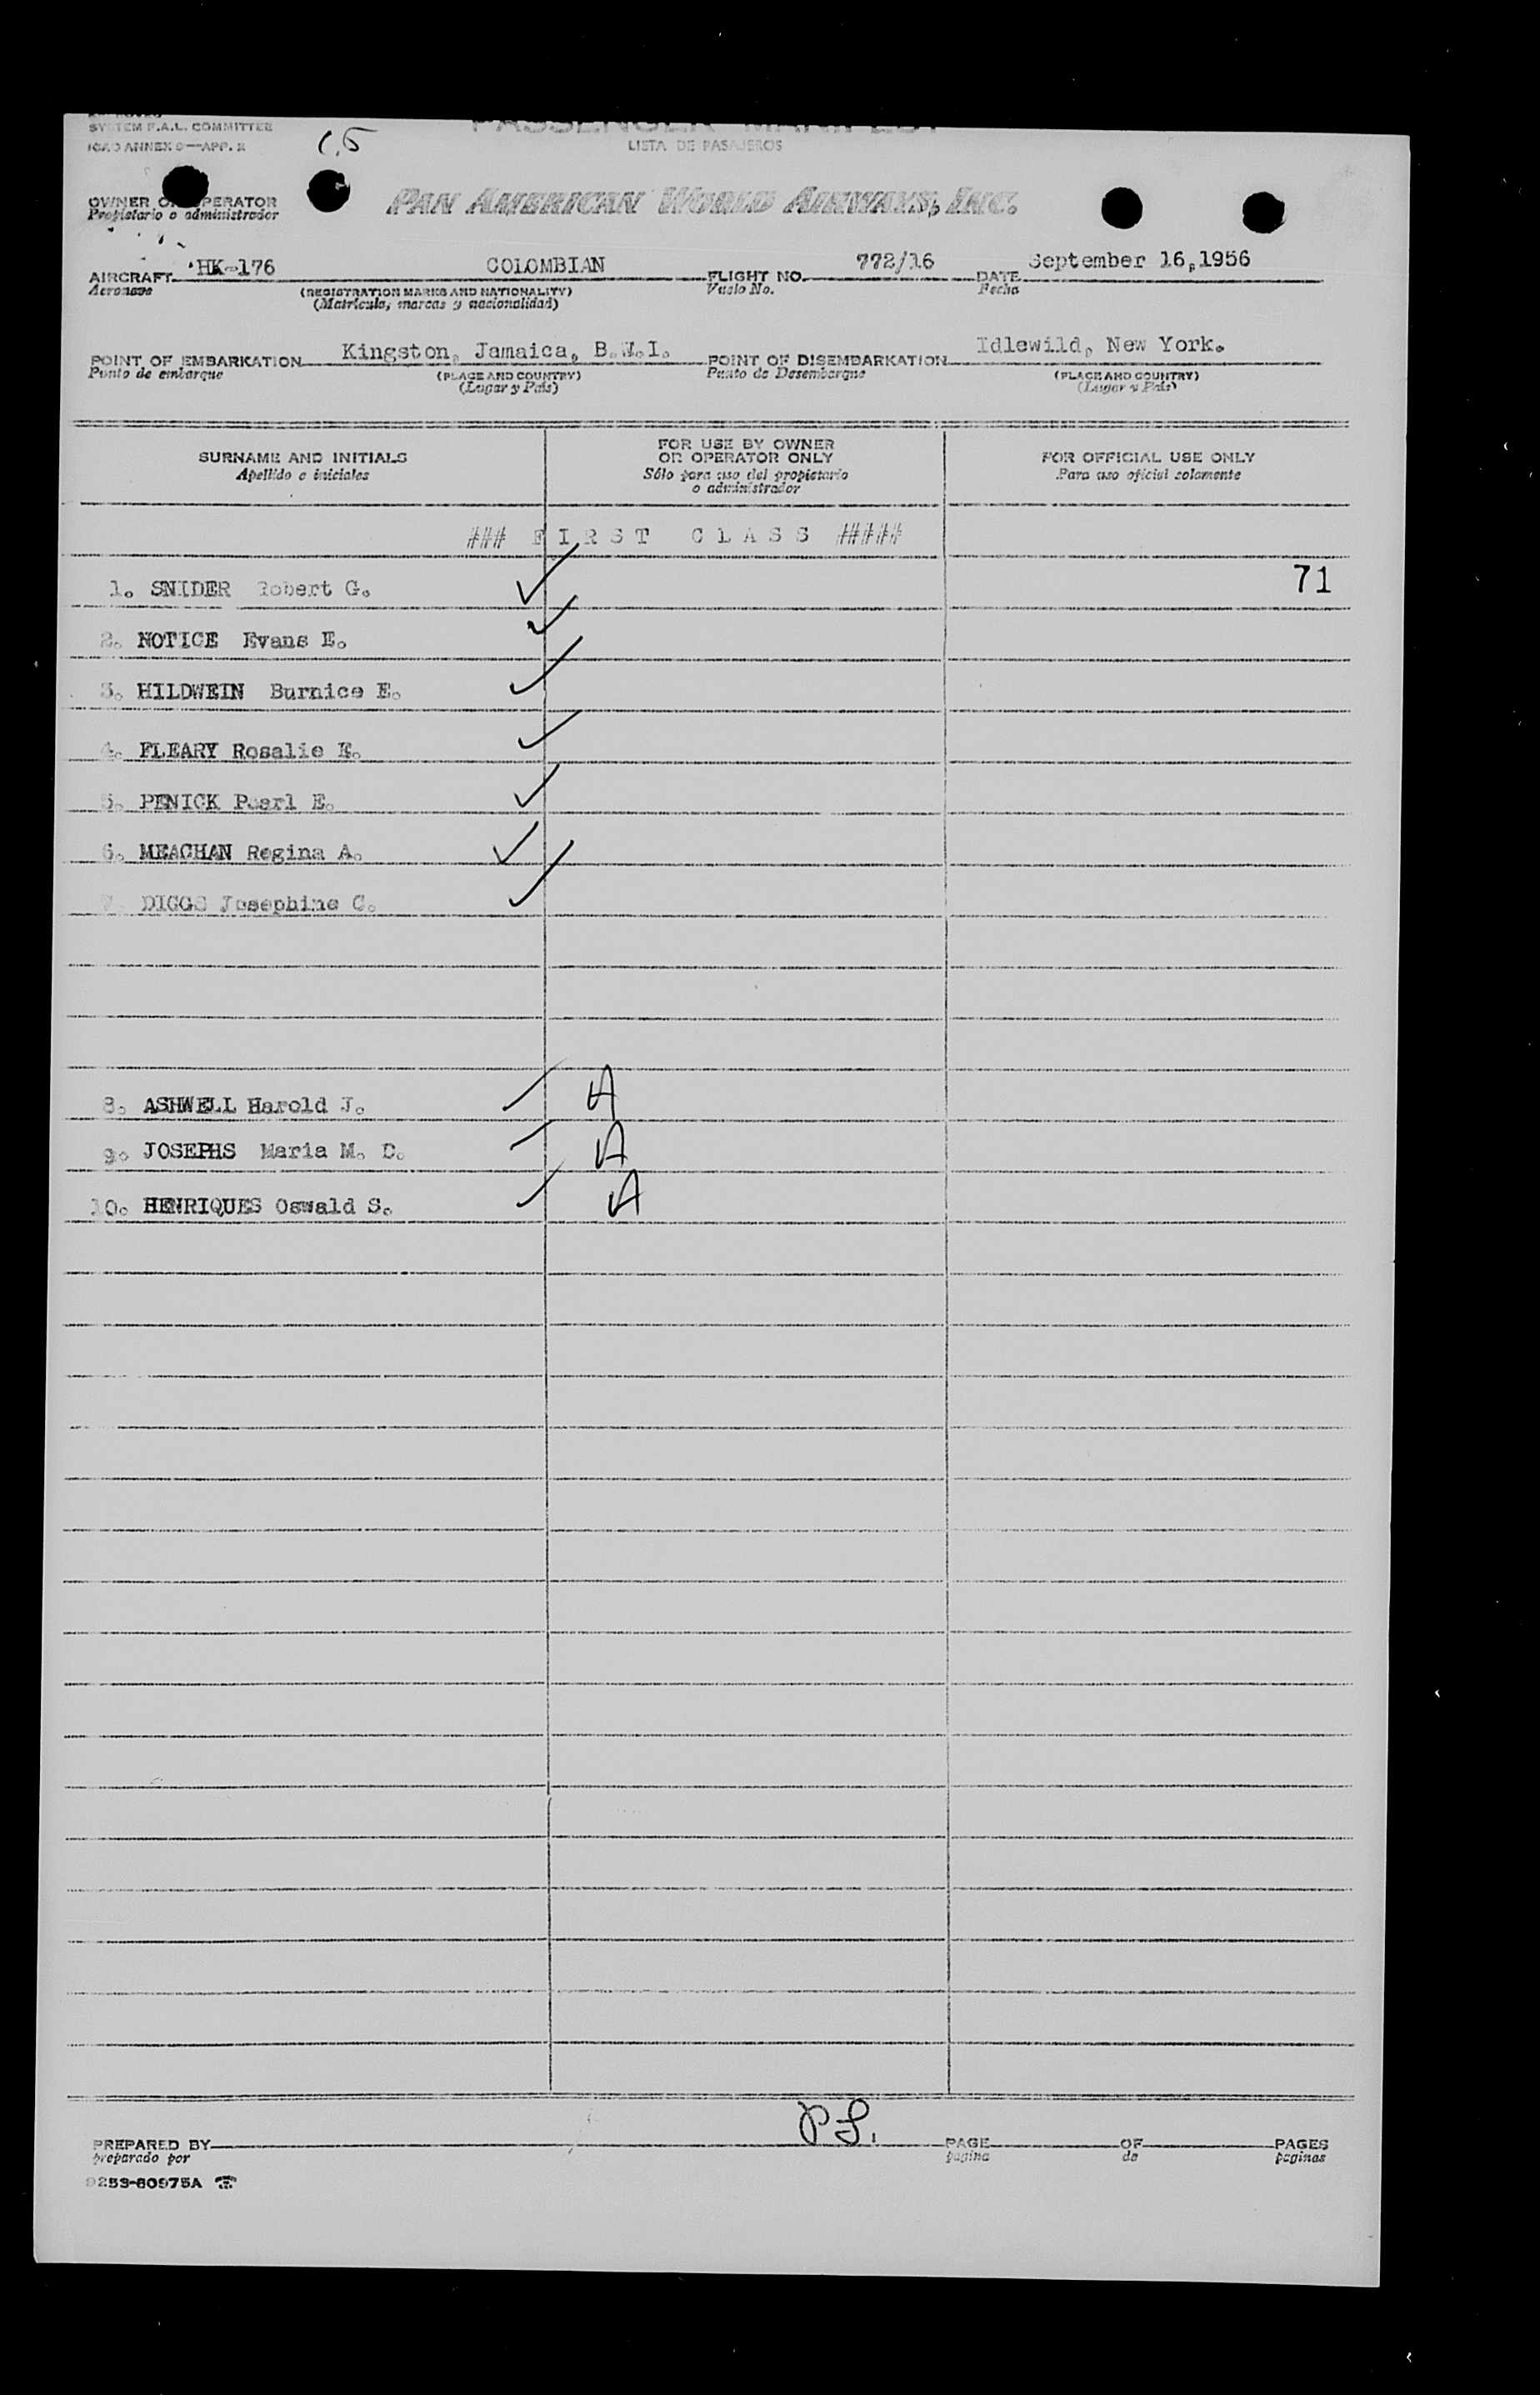 SYSTEM F.A.L. COMMITTEE
PASSENGER MANIFEST
ICAO ANNEX 9—APP. 2
LISTA DE PASAJEROS
OWNER OR OPERATOR
Propietario o administrador
PAN AMERICAN WORLD AIRWAYS, INC.
AIRCRAFT HK-176 COLOMBIAN FLIGHT NO. 772/16 DATE September 16,1956
Aeronave (REGISTRATION MARKS AND NATIONALITY) Vuelo No. Fecha
(Matrícula, marcas y nacionalidad)
POINT OF EMBARKATION Kingston, Jamaica, B.W.I. POINT OF DISEMBARKATION Idlewild, New York.
Punto de embarque (PLACE AND COUNTRY) Punto de Desembarque (PLACE AND COUNTRY)
(Lugar y País) (Lugar y País)
SURNAME AND INITIALS FOR USE BY OWNER OR OPERATOR ONLY FOR OFFICIAL USE ONLY
Apellido e iniciales Sólo para uso del propietario o administrador Para uso oficial solamente
### FIRST CLASS #####
1. SNIDER Robert G. 71
2. NOTICE Evans E.
3. HILDWEIN Burnice E.
4. FLEARY Rosalie E.
5. PENICK Pearl E.
6. MEACHAN Regina A.
7. DIGGS Josephine C.
8. ASHWELL Harold J. A
9. JOSEPHS Maria M. C. A
10. HENRIQUES Oswald S. A
PREPARED BY P.S. PAGE OF PAGES
preparado por pagina de paginas
9253-60975A